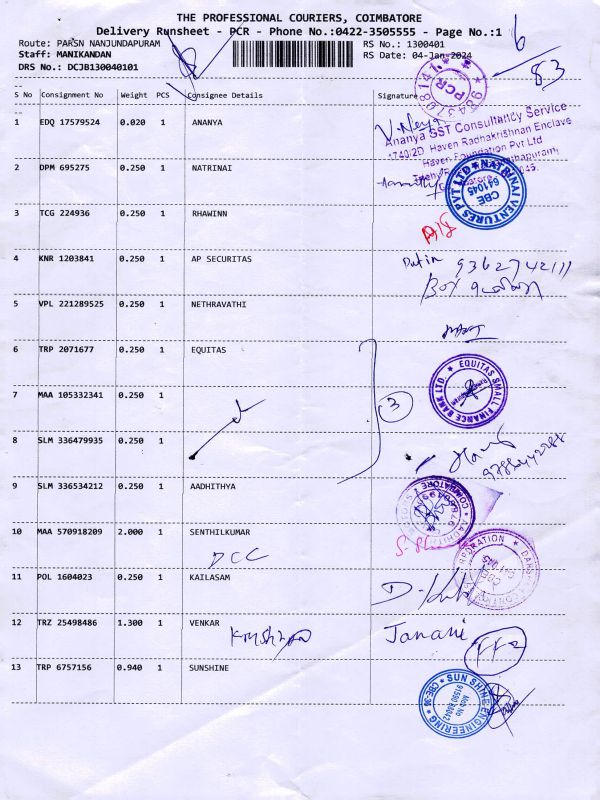 THE PROFESSIONAL COURIERS, COIMBATORE
Delivery Runsheet - PCR - Phone No.:0422-3505555 - Page No.:1
Route: PARSN NANJUNDAPURAM
RS No.: 1300401
Staff: MANIKANDAN
RS Date: 04-Jan-2024
DRS No.: DCJB130040101
6
83
S No Consignment No Weight PCS Consignee Details Signature
1 EDQ 17579524 0.020 1 ANANYA
PCR
Ananya SST Consultancy Service
1740/2D Haven Radhakrishnan Enclave
Haven Foundation Pvt Ltd
2 DPM 695275 0.250 1 NATRINAI
NATRINAI VENTURES PVT LTD
CBE
641045
3 TCG 224936 0.250 1 RHAWINN
4 KNR 1203841 0.250 1 AP SECURITAS
9362742111
Box
5 VPL 221289525 0.250 1 NETHRAVATHI
6 TRP 2071677 0.250 1 EQUITAS
EQUITAS SMALL FINANCE BANK LTD.
7 MAA 105332341 0.250 1
3
8 SLM 336479935 0.250 1
9 SLM 336534212 0.250 1 AADHITHYA
COIMBATORE
10 MAA 570918209 2.000 1 SENTHILKUMAR
DCC
CBE
11 POL 1604023 0.250 1 KAILASAM
12 TRZ 25498486 1.300 1 VENKAR
Janani
13 TRP 6757156 0.940 1 SUNSHINE
SUN SHINE ENGINEERING
Mob No